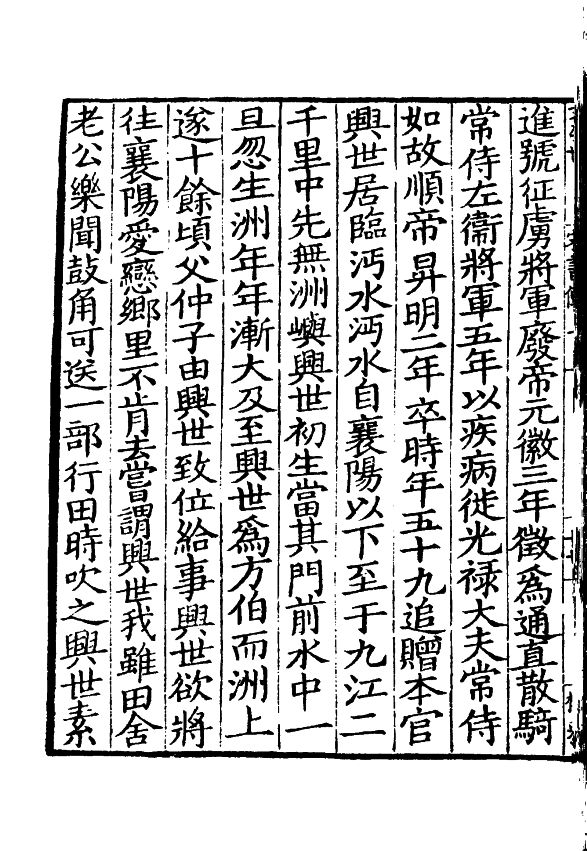 進號征虜將軍廢帝元徽三年徵爲通直散騎
常侍左衞將軍五年以疾病徙光禄大夫常侍
如故順帝昇明二年卒時年五十九追贈本官
興世居臨沔水沔水自襄陽以下至于九江二
千里中先無洲嶼興世初生當其門前水中一
旦忽生洲年年漸大及至興世爲方伯而洲上
遂十餘頃父仲子由興世致位給事興世欲將
往襄陽愛戀鄉里不肯去嘗謂興世我雖田舍
老公樂聞鼓角可送一部行田時吹之興世素